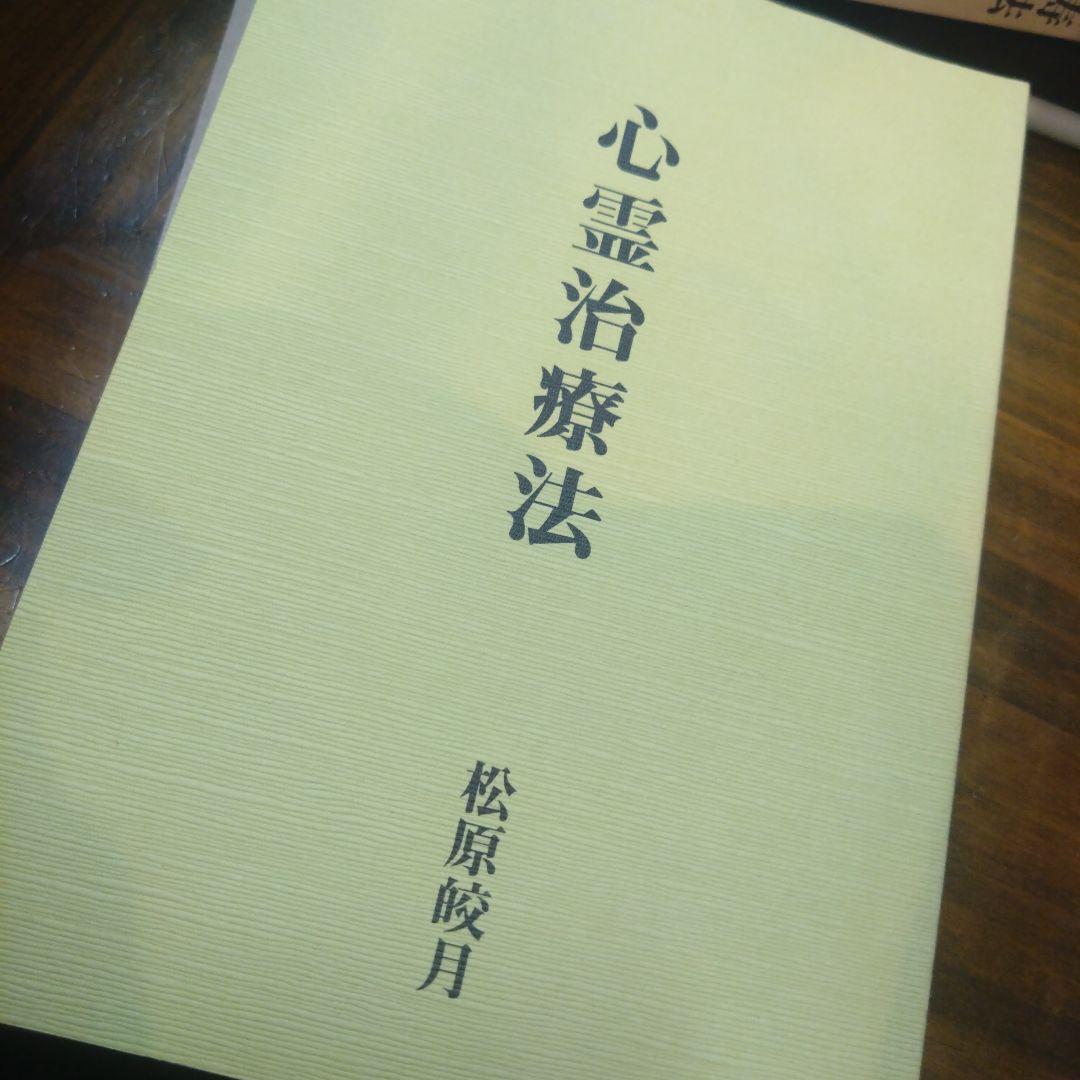 心霊治療法
松原皎月